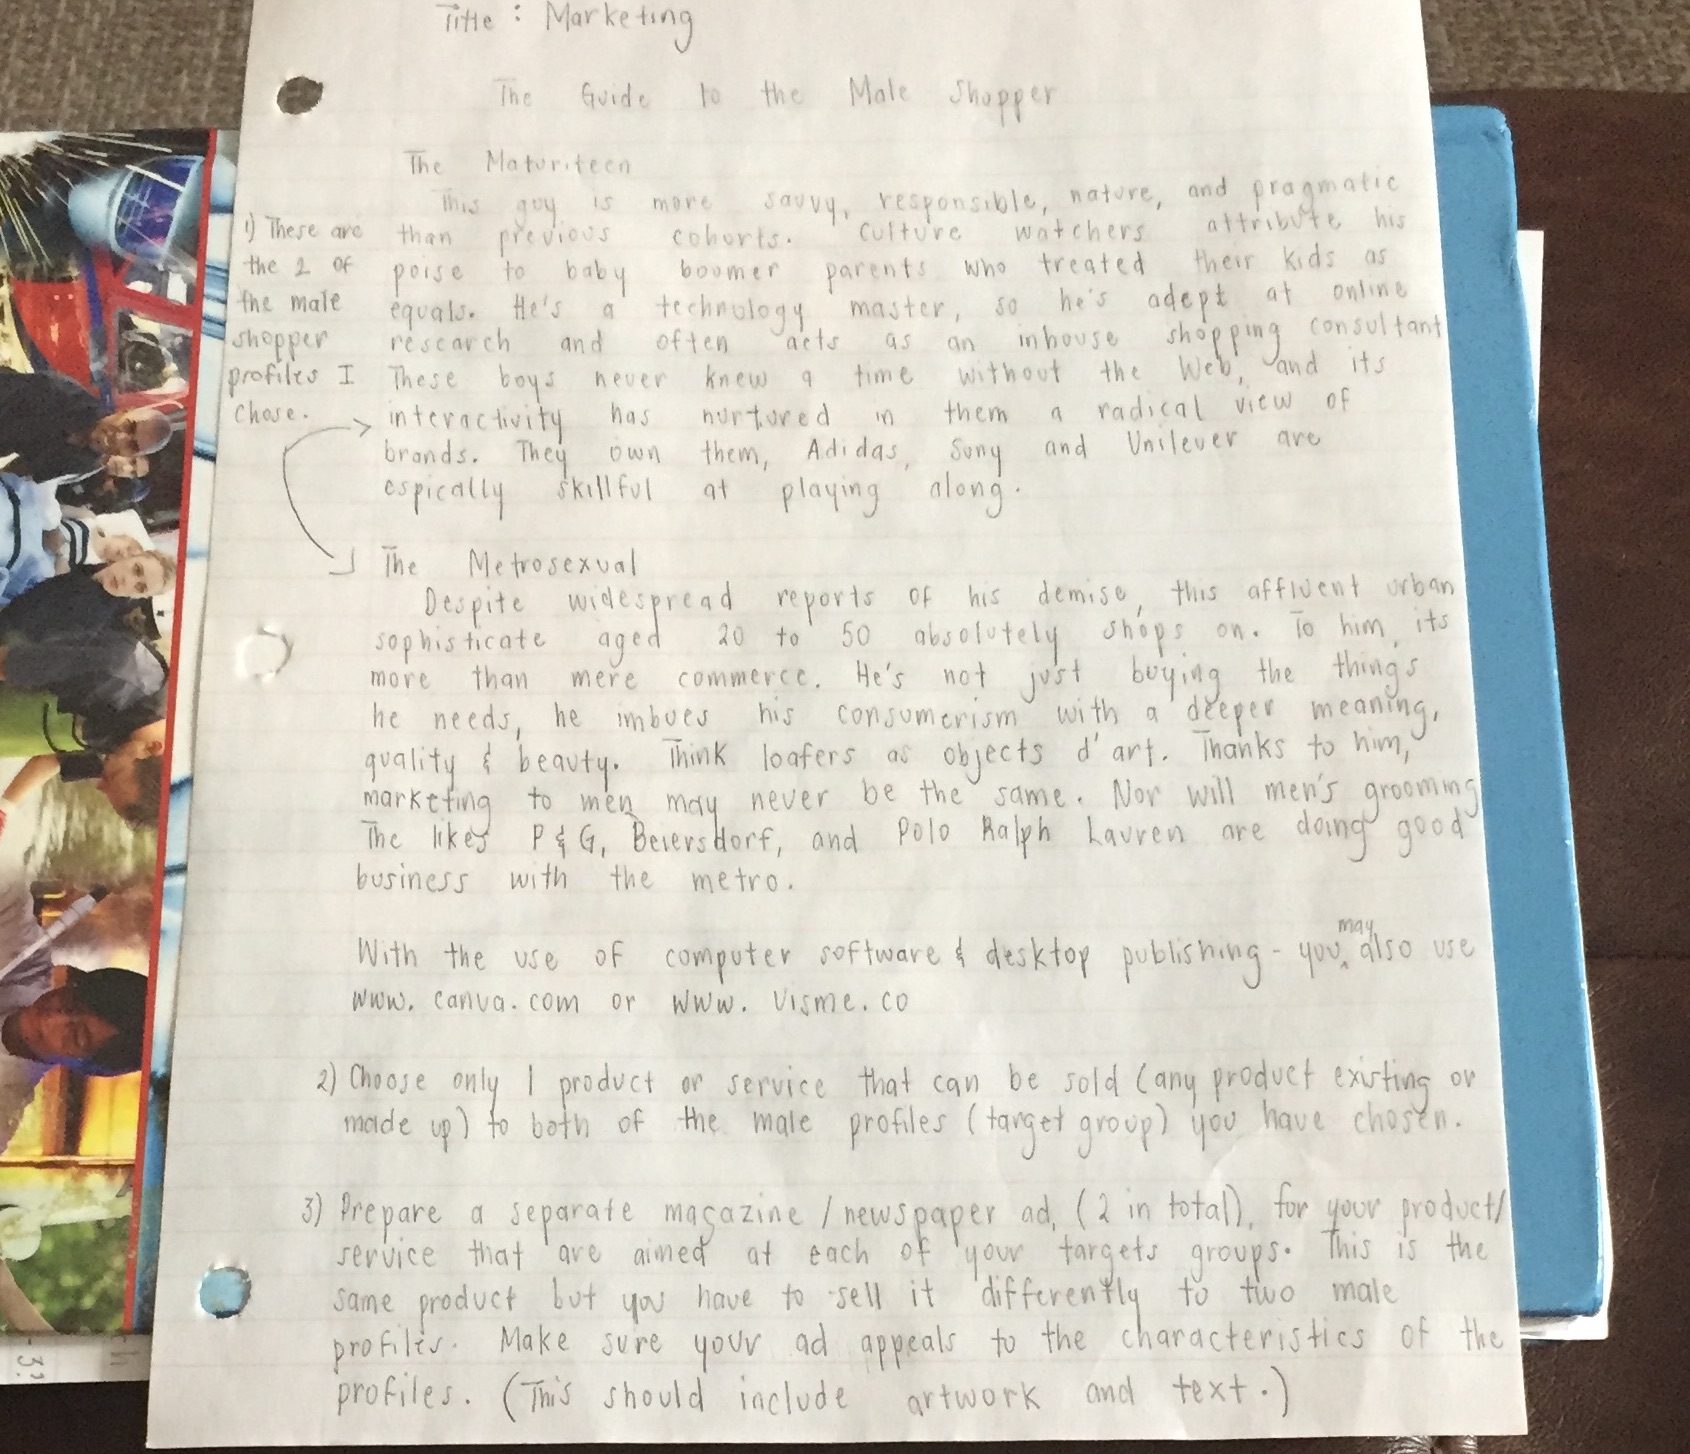 Title : Marketing
The Guide to the Male Shopper
The Maturiteen
This guy is more savvy, responsible, nature, and pragmatic
than previous cohorts. Culture watchers attribute his
poise to baby boomer parents who treated their kids as
equals. He's a technology master, so he's adept at online
research and often acts as an inhouse shopping consultant
These boys never knew a time without the Web, and its
interactivity has nurtured in them a radical view of
brands. They own them, Adidas, Sony and Unilever are
espically skillful at playing along.
1) These are
the 2 of
the male
shopper
profiles I
chose.
The Metrosexual
Despite widespread reports of his demise, this affluent urban
sophisticate aged 20 to 50 absolutely shops on. To him, its
more than mere commerce. He's not just buying the things
he needs, he imbues his consumerism with a deeper meaning,
quality & beauty. Think loafers as objects d'art. Thanks to him,
marketing to men may never be the same. Nor will men's grooming
The likes P & G, Beiersdorf, and Polo Ralph Lauren are doing good
business with the metro.
With the use of computer software & desktop publishing - you may also use
www.canva.com or www.visme.co
2) Choose only 1 product or service that can be sold (any product existing or
made up) to both of the male profiles (target group) you have chosen.
3) Prepare a separate magazine / newspaper ad, (2 in total), for your product/
service that are aimed at each of your targets groups. This is the
same product but you have to sell it differently to two male
profiles. Make sure your ad appeals to the characteristics of the
profiles. (This should include artwork and text.)